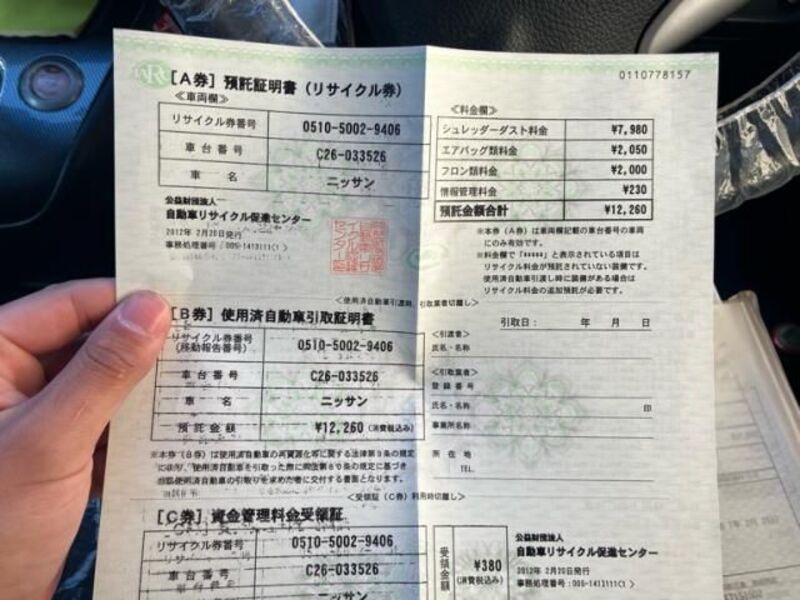 0110778157
[A券] 預託証明書 (リサイクル券)
≪車両欄≫
リサイクル券番号 0510-5002-9406
車台番号 C26-033526
車名 ニッサン
公益財団法人
自動車リサイクル促進センター
2012年 2月20日発行
事務処理番号:005-1413111(1)
≪料金欄≫
シュレッダーダスト料金 ¥7,980
エアバッグ類料金 ¥2,050
フロン類料金 ¥2,000
情報管理料金 ¥230
預託金額合計 ¥12,260
※本券(A券)は車両欄記載の車台番号の車両
にのみ有効です。
※料金欄で「*****」と表示されている項目は
リサイクル料金が預託されていない装備です。
使用済自動車引渡し時に装備がある場合は
リサイクル料金の追加預託が必要です。
<使用済自動車引渡時、引取業者切離し>
[B券] 使用済自動車引取証明書
リサイクル券番号
(移動報告番号) 0510-5002-9406
車台番号 C26-033526
車名 ニッサン
預託金額 ¥12,260 (消費税込み)
※本券(B券)は使用済自動車の再資源化等に関する法律第9条の規定
に従い、使用済自動車を引取った際に同法第80条の規定に基づき
使用済自動車の引取りを求めた者に交付する書面となります。
引取日: 年 月 日
<引渡者>
氏名・名称
<引取業者>
登録番号
氏名・名称 印
事業所名称
所在地
TEL.
<受領証(C券)利用時切離し>
[C券] 資金管理料金受領証
リサイクル券番号 0510-5002-9406
車台番号 C26-033526
ニッサン
受領金額 ¥380
(消費税込み)
公益財団法人
自動車リサイクル促進センター
2012年 2月20日発行
事務処理番号:005-1413111(1)